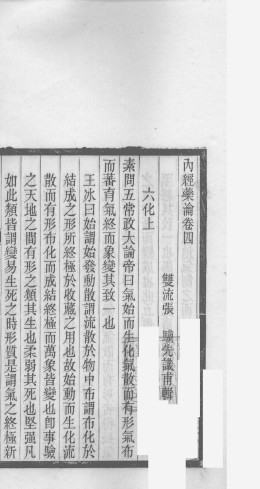 內經藥論卷四
雙流張 驥先識甫輯
六化上
素問五常政大論帝曰氣始而生化氣散而有形氣布
而蕃育氣終而象變其致一也
王冰曰始謂始發動散謂流散於物中布謂布化於
結成之形所終極於收藏之用也故始動而生化流
散而有形布化而成結終極而萬象皆變也卽事驗
之天地之間有形之類其生也柔弱其死也堅强凡
如此類皆謂變易生死之時形質是謂氣之終極新